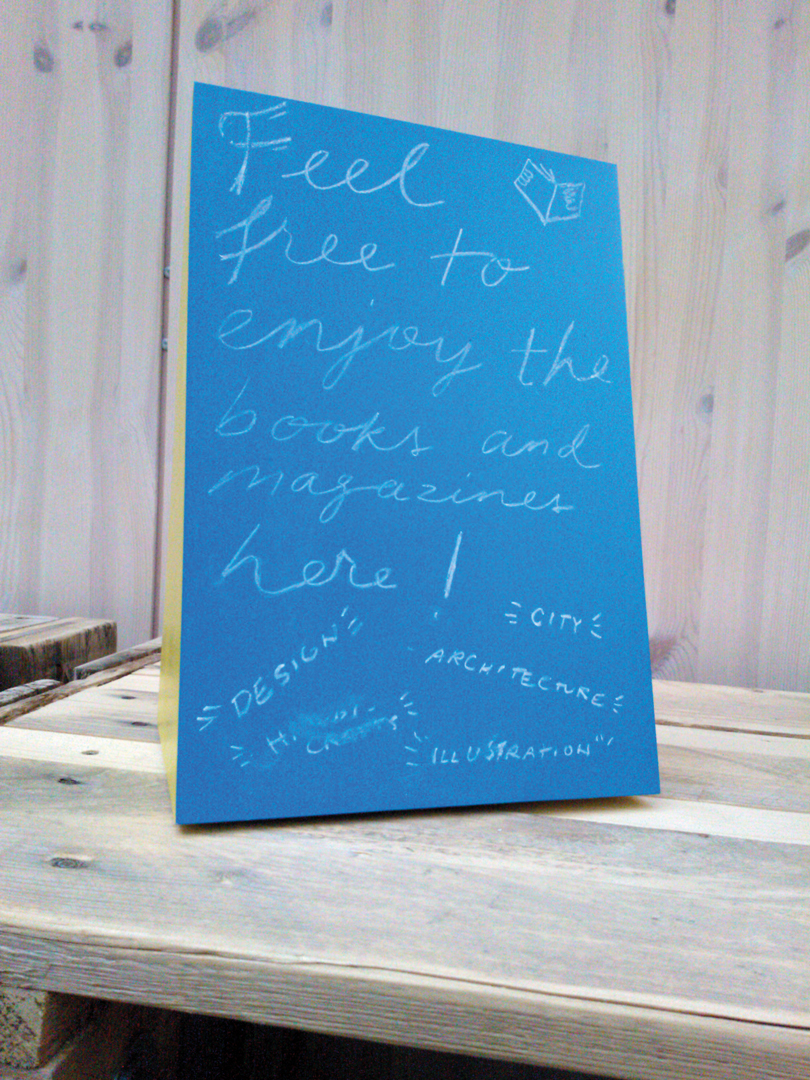 Feel
free to
enjoy the
books and
magazines
here!
CITY
DESIGN
ARCHITECTURE
CRAFTS
ILLUSTRATION